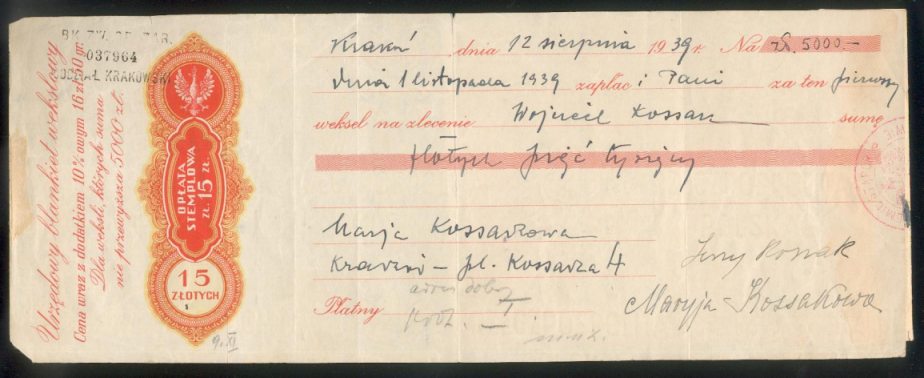 Urzędowy blankiet wekslowy
Cena wraz z dodatkiem 10% owym 16 zł 50 gr.
Dla weksli, których suma
nie przewyższa 5000 zł.
037964
ODDZIAŁ KRAKOWSKI
OPŁATA
STEMPLOWA
ZŁ. 15 ZŁ.
15
ZŁOTYCH
Kraków, dnia 12 sierpnia 1939 r. Na zł. 5000.—
dnia 1 listopada 1939 zapłaci Pani za ten pierwszy
weksel na zlecenie Wojciech Kossak sumę
złotych pięć tysięcy
Marja Kossakowa
Kraków – pl. Kossaka 4
Płatny
adres dobry
9.XI
Jerzy Kossak
Maryja Kossakowa